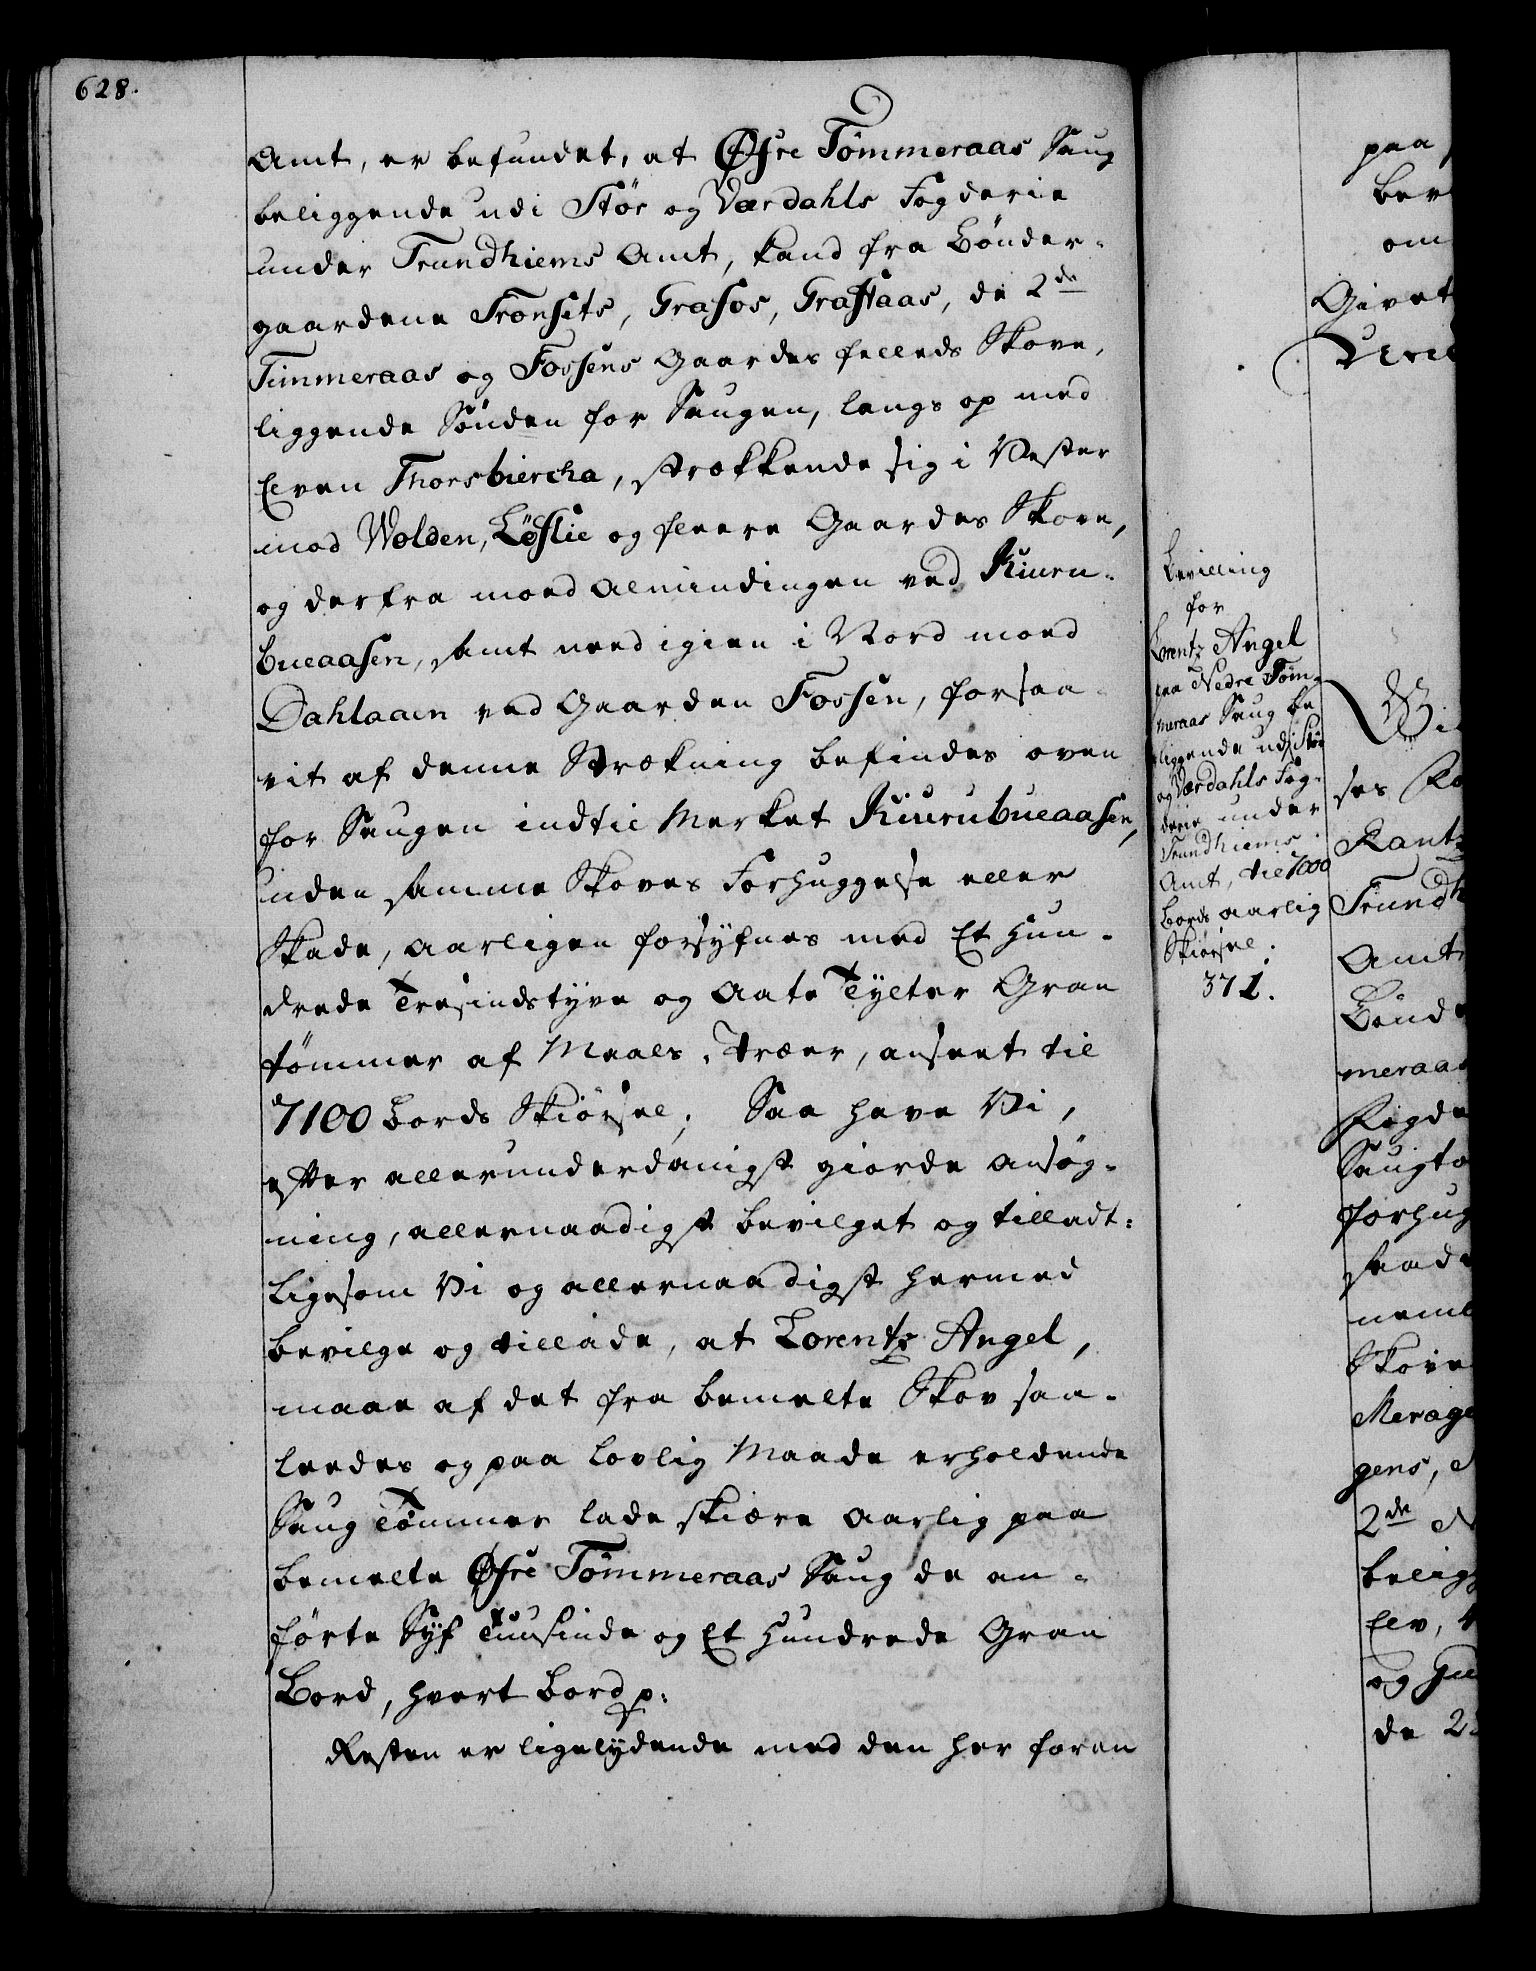 628.
Amt, er befundet, at Øfre Tømmeraas Saug
beliggende udi Stør og Værdahls Fogderie
under Trundhiems Amt, kand fra Bønder-
gaardene Tronsets, Grasos, Graftaas, de 2de
Timmeraas og Fossens Gaardes felleds Skove,
liggende Sönden for Saugen, langs op med
Elven Thorsbiercha, strækkende sig i Vester
mod Wolden, Löflie og fleere Gaardes Skove,
og derfra moed Almindingen ved Kiuru-
bueaasen, samt need igien i Nord moed
Dahlaaen ved Gaarden Fossen, forsaa-
vit af denne Strækning befindes oven
for Saugen indtil Merket Kiurubueaasen,
uden samme Skoves Forhuggelse eller
Skade, aarligen forsyfnes med Et Hun-
drede Tresindstyve og Aate Tylter Gran
tömmer af Maals-Træer, anseet til
7100 Bords Skiørsel; Saa have Vi,
efter allerunderdanigst giorde Ansøg-
ning, allernaadigst bevilget og tilladt:
Ligesom Vi og allernaadigst hermed
bevilge og tillade, at Lorentz Angel,
maae af det fra bemelte Skov saa-
ledes og paa lovlig Maade erholdende
Saug Tømmer lade skiære aarlig paa
bemelte Øfre Tømmeraas Saug de an-
førte Syf Tuusinde og Et Hundrede Gran
Bord, hvert Bord p:
Resten er ligelydende med den her foran
Bevilling
for
Lorentz Angel
paa Nedre Töm-
meraas Saug be
liggende udi Stør
og Værdahls Fog-
derie under
Trundhiems
Amt, til 7000
Bords aarlig
Skiørsel.
371.
paa
bev
om
Givet
ses
Kantz
Trundh
Amt
Bönde
meraas
Fogde
Saugto
forhug
saade
neml
Skove
Merage
gens,
2de
belig
Elv,
og
de 2